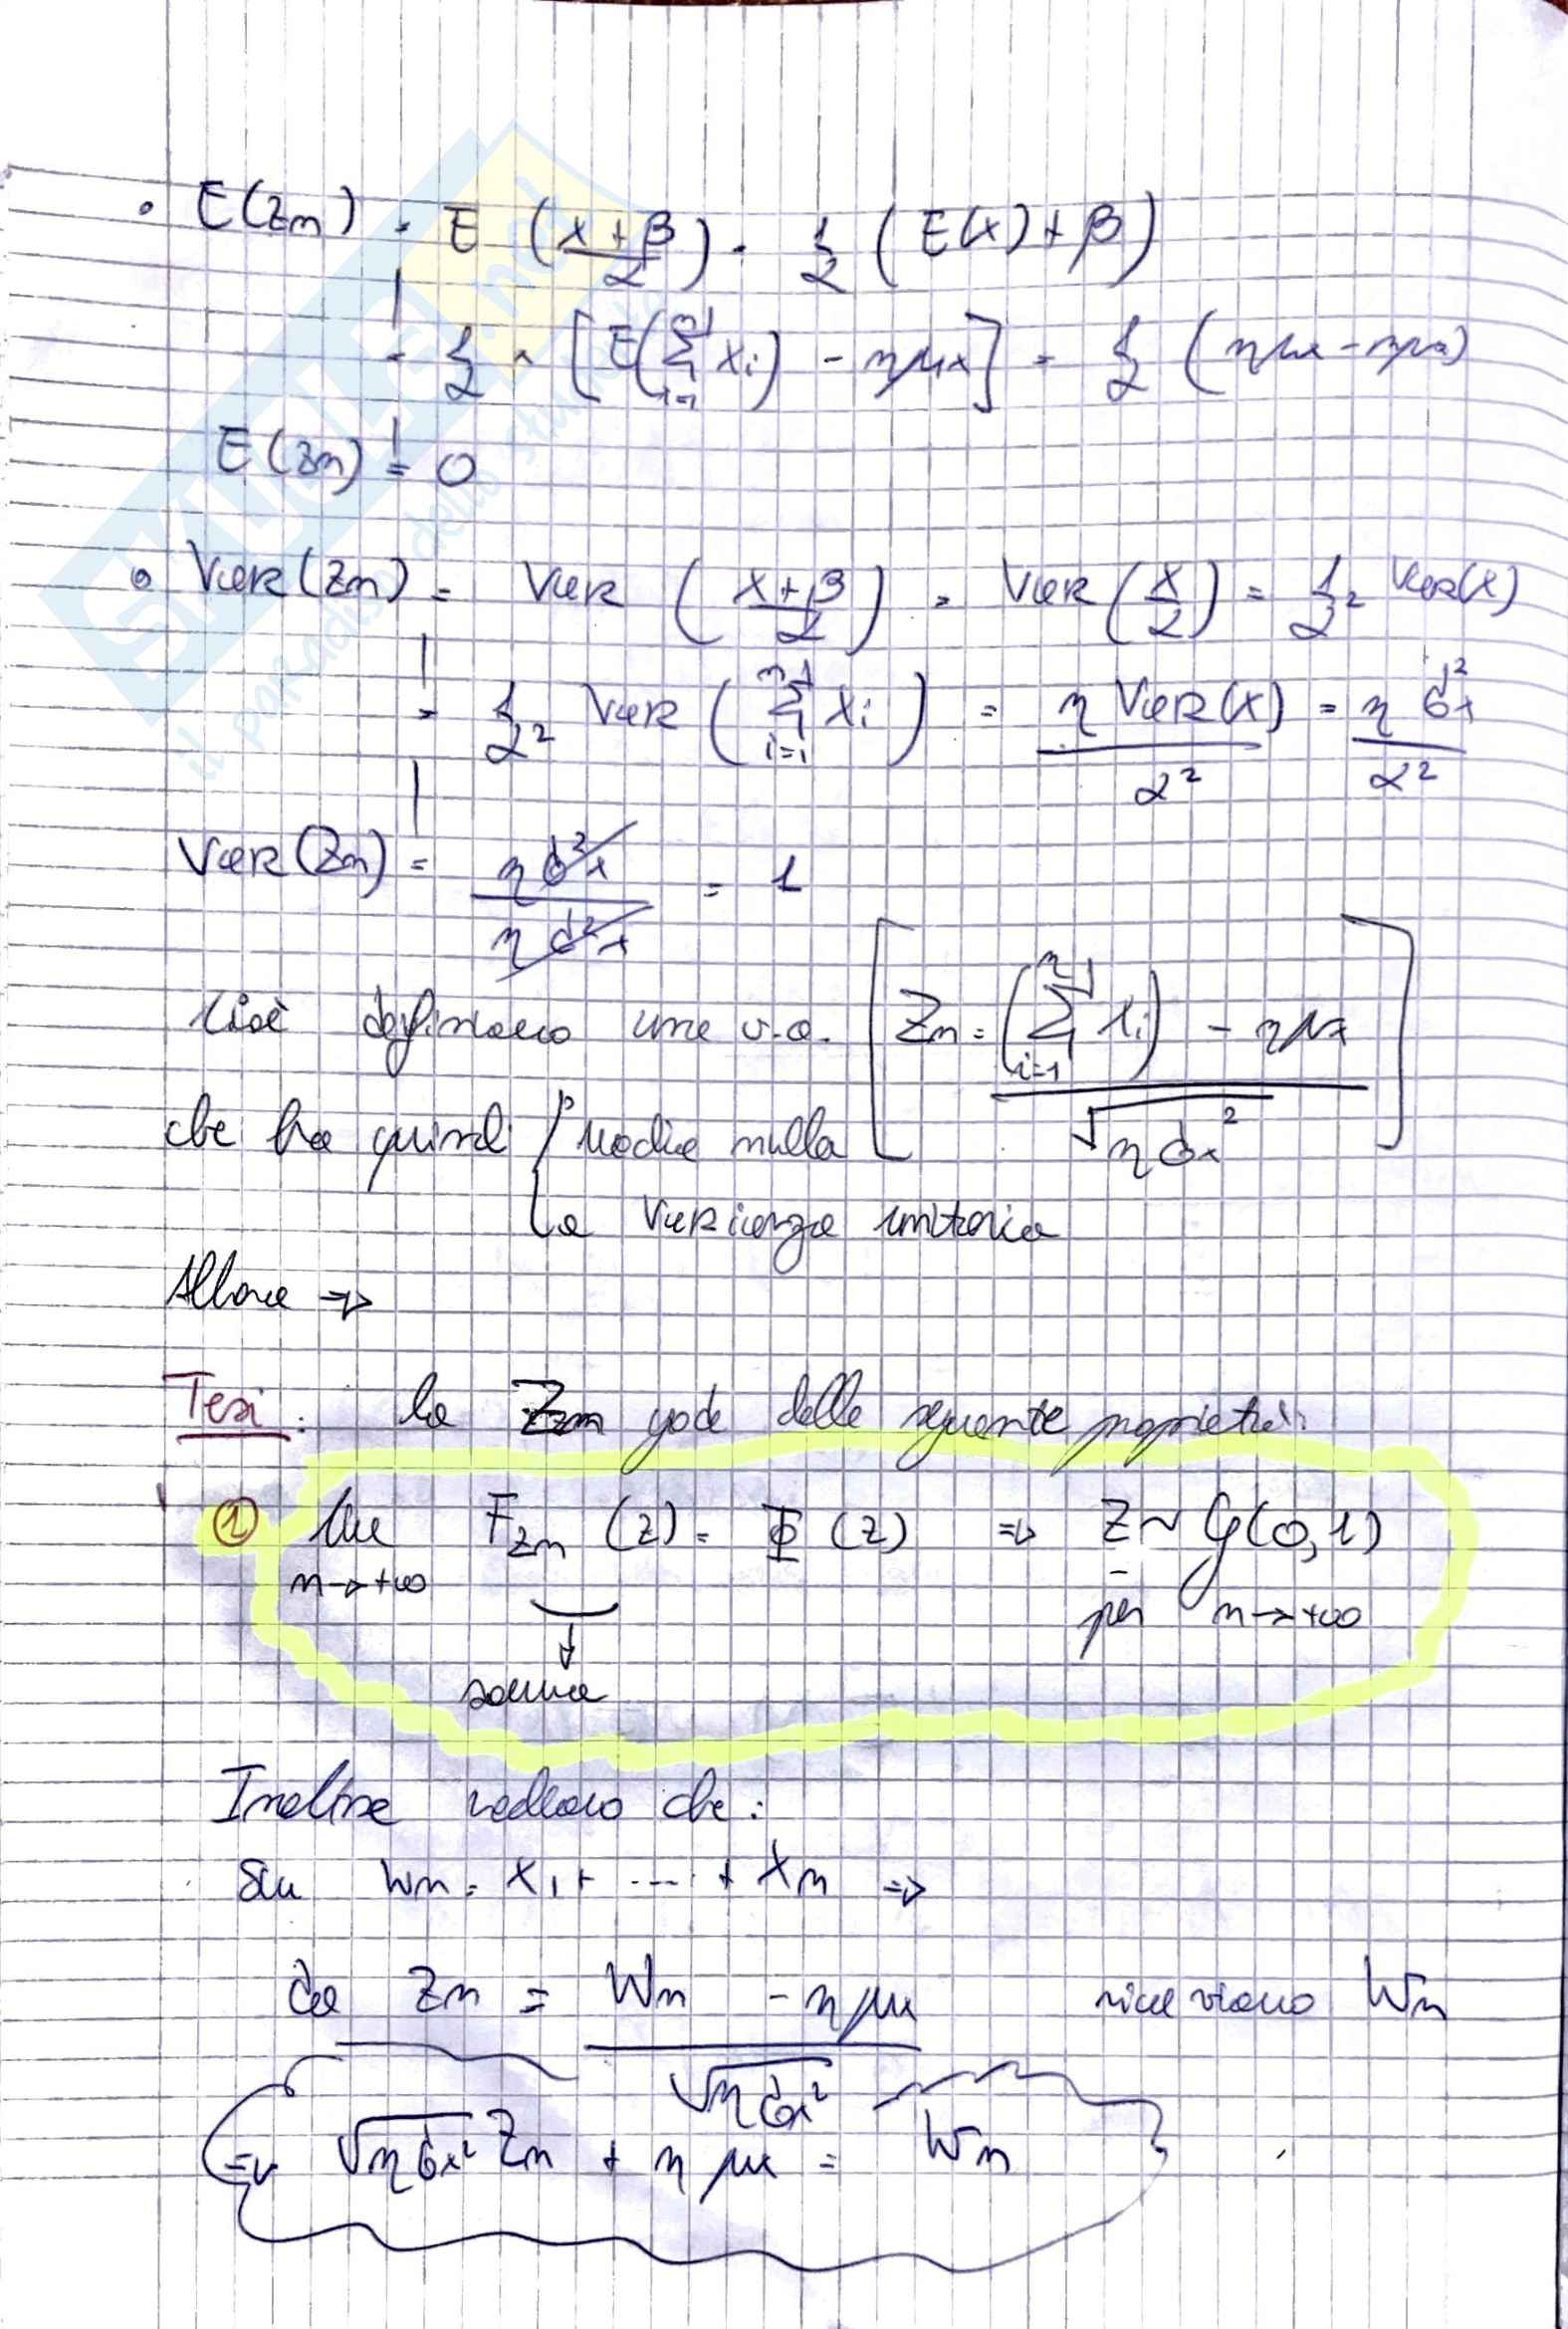 • E(Zn) = E (X+β / α) = 1/α (E(X)+β)
= 1/α · [E(∑ i=1 n Xi) - nμx] = 1/α (nμx - nμx)
E(Zn) = 0
• VAR(Zn) = VAR (X+β / α) = VAR (X/α) = 1/α² VAR(X)
= 1/α² VAR (∑ i=1 n Xi) = n VAR(X) / α² = n σx² / α²
VAR(Zn) = n σ²x / n σ²x = 1
Cioè definiamo una v.a. [Zn = (∑ i=1 n Xi) - nμx / √nσx²]
che ha quindi media nulla
e varianza unitaria
Allora ⇒
Tesi: la Zn gode delle seguente proprietà:
① lim n→+∞ FZn (z) = Φ (z) ⇒ Z ~ G(0,1)
per n→+∞
somma
Inoltre vediamo che:
Sia Wn = X1 + ---- + Xn ⇒
da Zn = Wn - nμx / √nσx² ricaviamo Wn
⇒ √nσx² Zn + n μx = Wn
SKUOLA.net
il paradiso dello studente